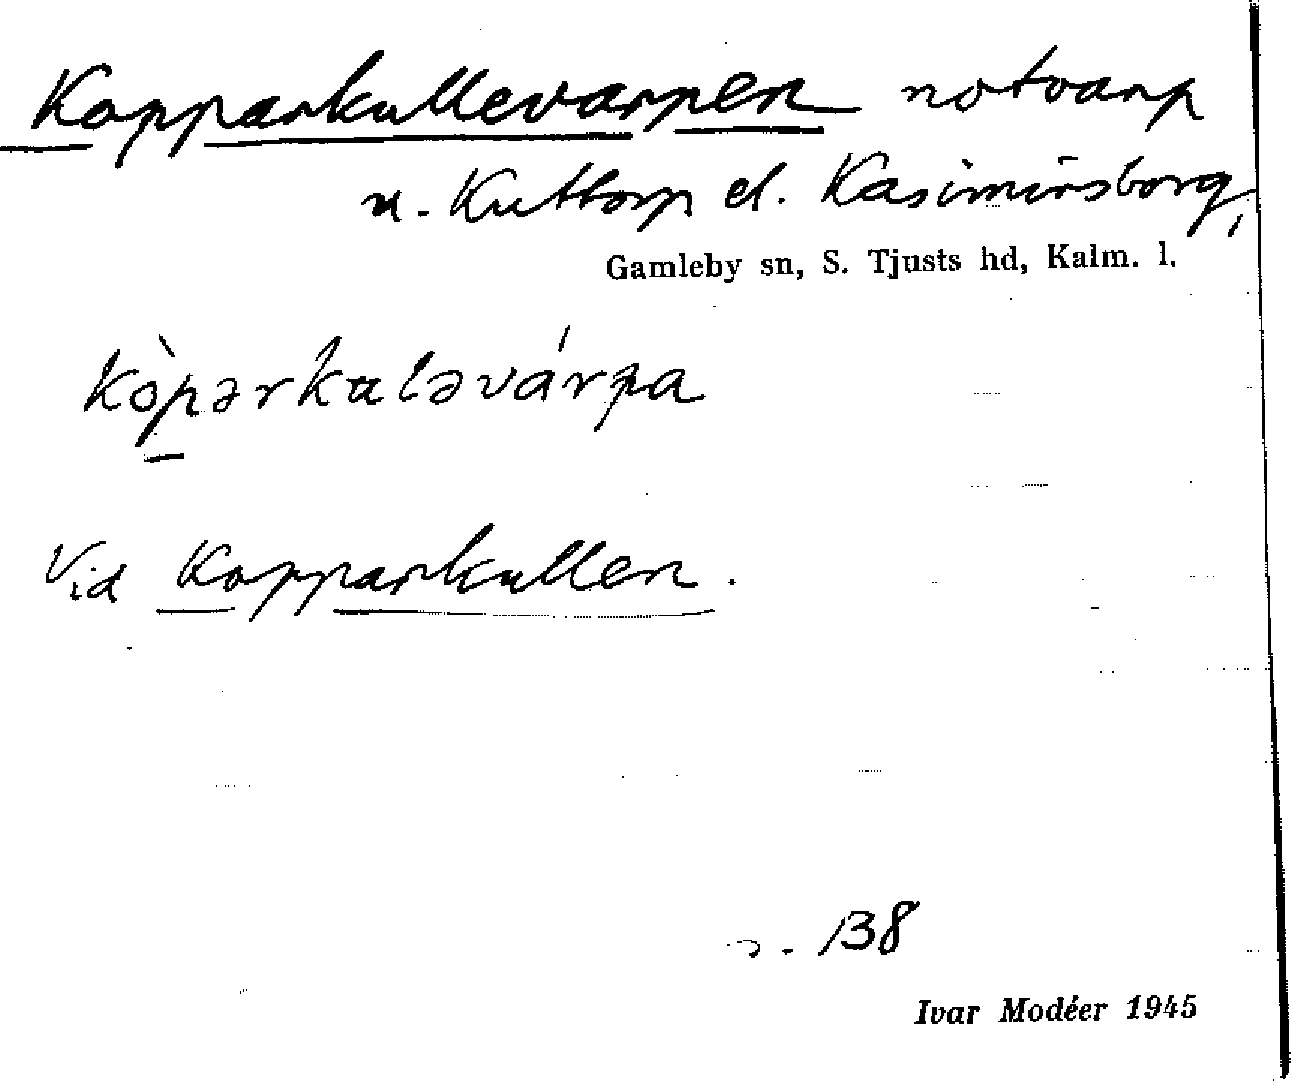 Kopparkullevarpen notvarp
u. Kuttorp el. Kasimirsborg,
Gamleby sn, S. Tjusts hd, Kalm. l.
kòpərkuləvárpa
Vid Kopparkullen.
138
Ivar Modéer 1945